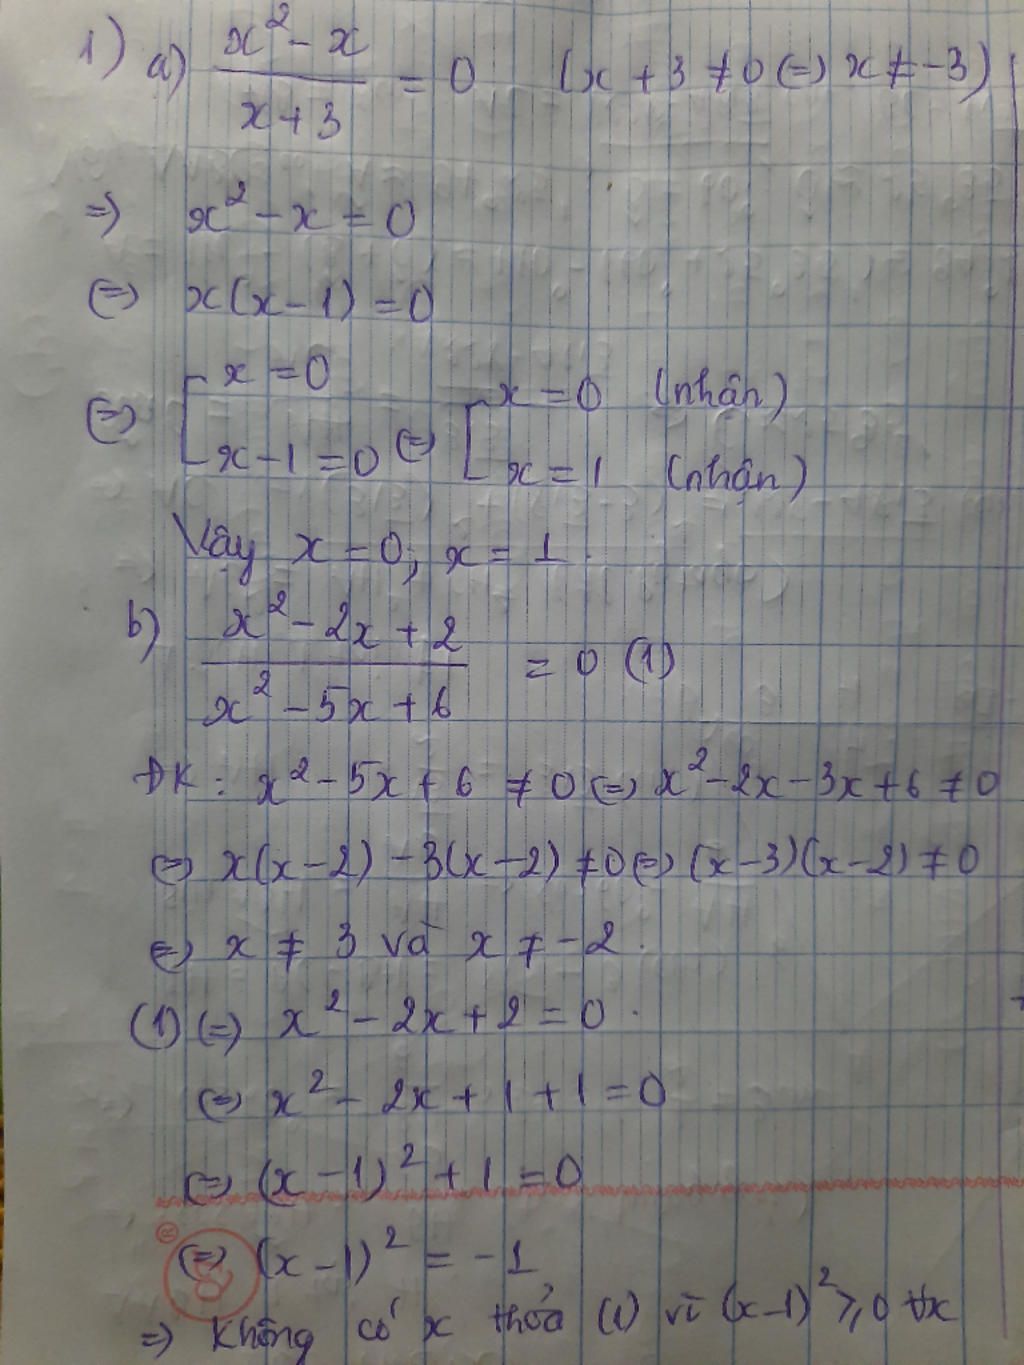 1) a) (x² - x)/(x + 3) = 0 (x + 3 ≠ 0 (=) x ≠ -3)
=) x² - x = 0
(=) x(x - 1) = 0
(=) [ x = 0
x - 1 = 0 (=) [ x = 0 (nhận)
x = 1 (nhận)
Vậy x = 0; x = 1.
b) (x² - 2x + 2)/(x² - 5x + 6) = 0 (1)
ĐK: x² - 5x + 6 ≠ 0 (=) x² - 2x - 3x + 6 ≠ 0
(=) x(x - 2) - 3(x - 2) ≠ 0 (=) (x - 3)(x - 2) ≠ 0
(=) x ≠ 3 và x ≠ -2.
(1) (=) x² - 2x + 2 = 0.
(=) x² - 2x + 1 + 1 = 0
(=) (x - 1)² + 1 = 0
(=) (x - 1)² = -1
=) Không có x thỏa (1) vì (x - 1)² ≥ 0 ∀x